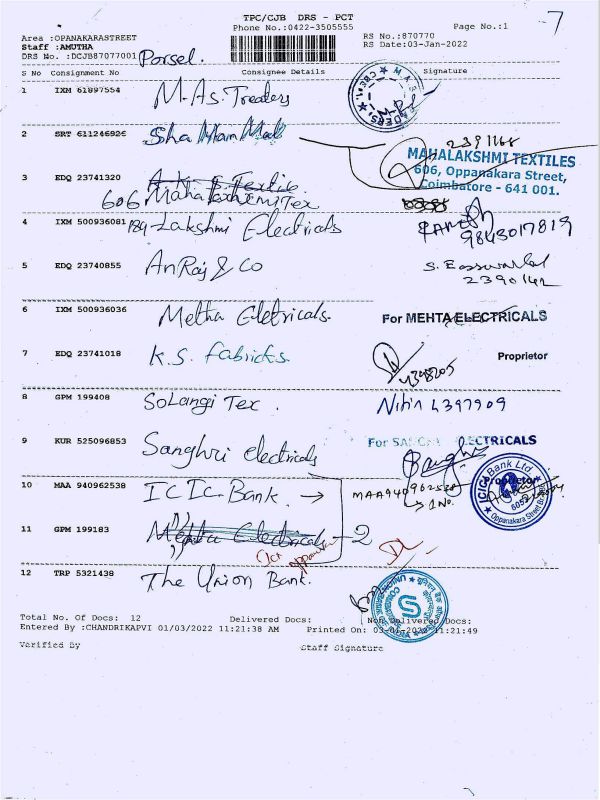 TPC/CJB DRS - PCT
7
Phone No.:0422-3505555
Page No.:1
Area :OPANAKARASTREET
RS No.:870770
Staff :AMUTHA
RS Date:03-Jan-2022
DRS No. :DCJB87077001 Porsel.
S No Consignment No Consignee Details Signature
1 IXM 61897554 M.As. Treaders
2 SRT 611246926 Sha
2391168
MAHALAKSHMI TEXTILES
606, Oppanakara Street,
Coimbatore - 641 001.
3 EDQ 23741320
606 Mahalakshmi Tex
4 IXM 500936081 184-Lakshmi Electricals
9843017819
5 EDQ 23740855 AnRaj & Co
2390142
6 IXM 500936036 Metha Eletricals. For MEHTA ELECTRICALS
7 EDQ 23741018 K.S. fabricks. Proprietor
4398205
8 GPM 199408 SoLangi Tex. Nitin 4397909
9 KUR 525096853 Sanghvi electricals
ELECTRICALS
Proprietor
10 MAA 940962538 ICIC Bank. → MAA940962538
→ 1 No.
ICICI Bank Ltd
6052
Oppanakara Street
11 GPM 199183 Mehta Electricals - 2
12 TRP 5321438 The Union Bank.
Total No. Of Docs: 12 Delivered Docs: Non Delivered Docs:
Entered By :CHANDRIKAPVI 01/03/2022 11:21:38 AM Printed On: 03-01-2022 11:21:49
Verified By Staff Signature